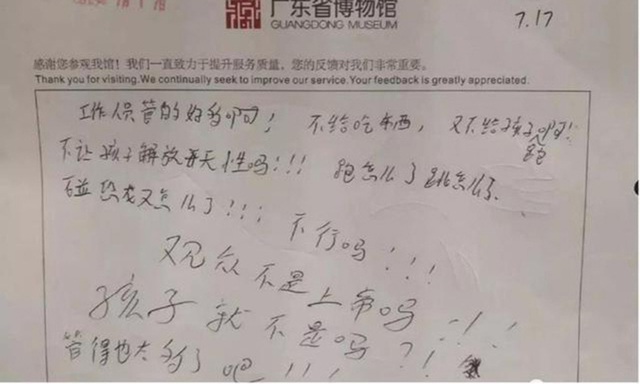 广东省博物馆
GUANGDONG MUSEUM
7.17
感谢您参观我馆！我们一直致力于提升服务质量，您的反馈对我们非常重要。
Thank you for visiting.We continually seek to improve our service.Your feedback is greatly appreciated.
工作人员管的好多啊！ 不给吃东西， 又不给孩子跑啊！
不让孩子解放天性吗！！！ 跑怎么了 跳怎么了
碰恐龙又怎么了！！！ 不行吗！！！
观众不是上帝吗！！！
孩子就不是吗？！！
管得也太多了吧！！！